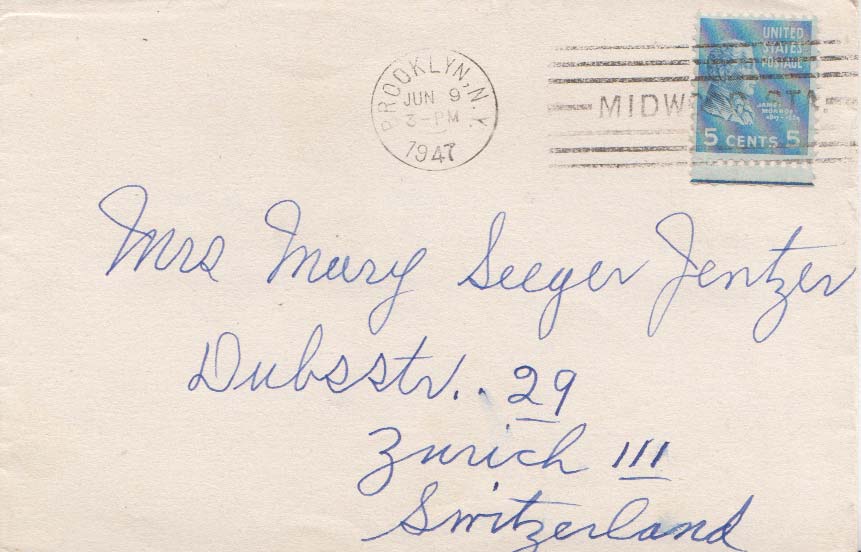 BROOKLYN, N.Y.
JUN 9
3-PM
1947
MIDWOOD STA.
UNITED
STATES
POSTAGE
JAMES
MONROE
1817-1825
5 CENTS 5
Mrs Mary Seeger Jentzer
Dubsstr.. 29
Zurich III
Switzerland